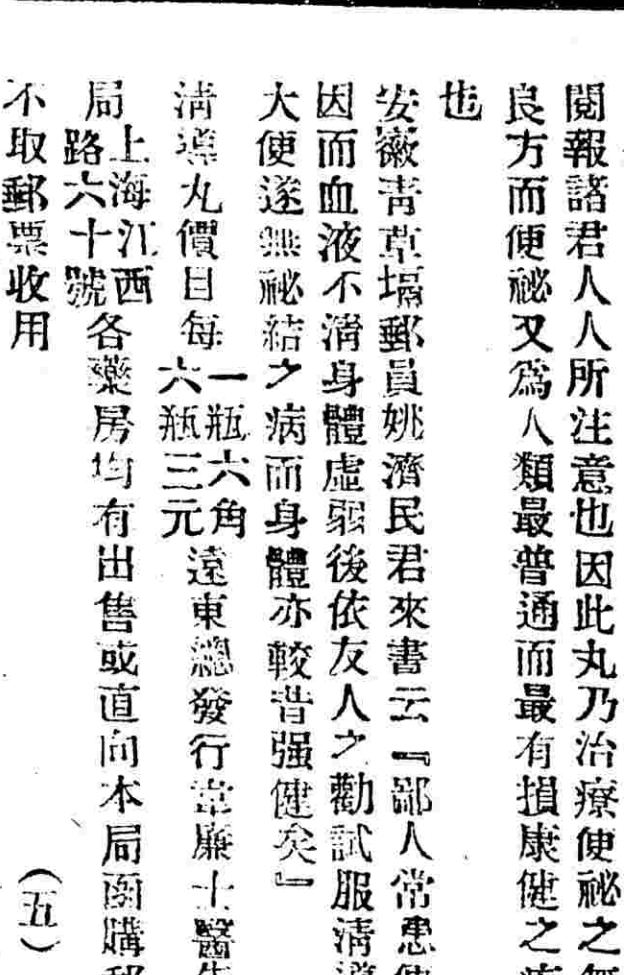 閱報諸君人人所注意也因此丸乃治療便祕之
良方而便祕又爲人類最普通而最有損康健之
也
安徽靑草塥郵員姚濟民君來書云『鄙人常患
因而血液不淸身體虛弱後依友人之勸試服淸
大便遂無祕結之病而身體亦較昔强健矣』
淸導丸價目每
一瓶六角
六瓶三元
遠東總發行韋廉士醫
局
上海江西
路六十號
各藥房均有出售或直向本局函購
不取郵票收用
（五）